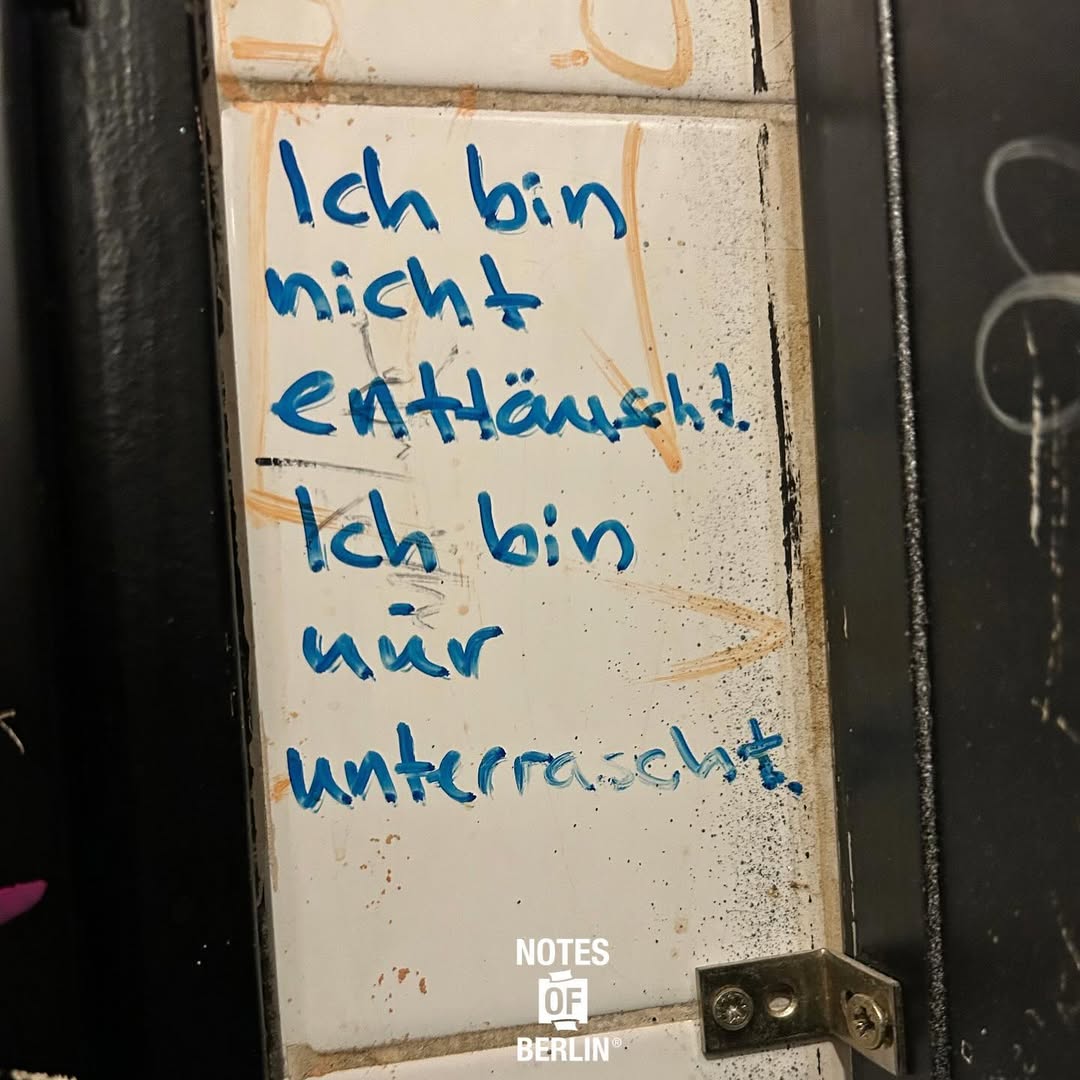 Ich bin
nicht
enttäuscht.
Ich bin
nur
unterrascht.
NOTES
OF
BERLIN®